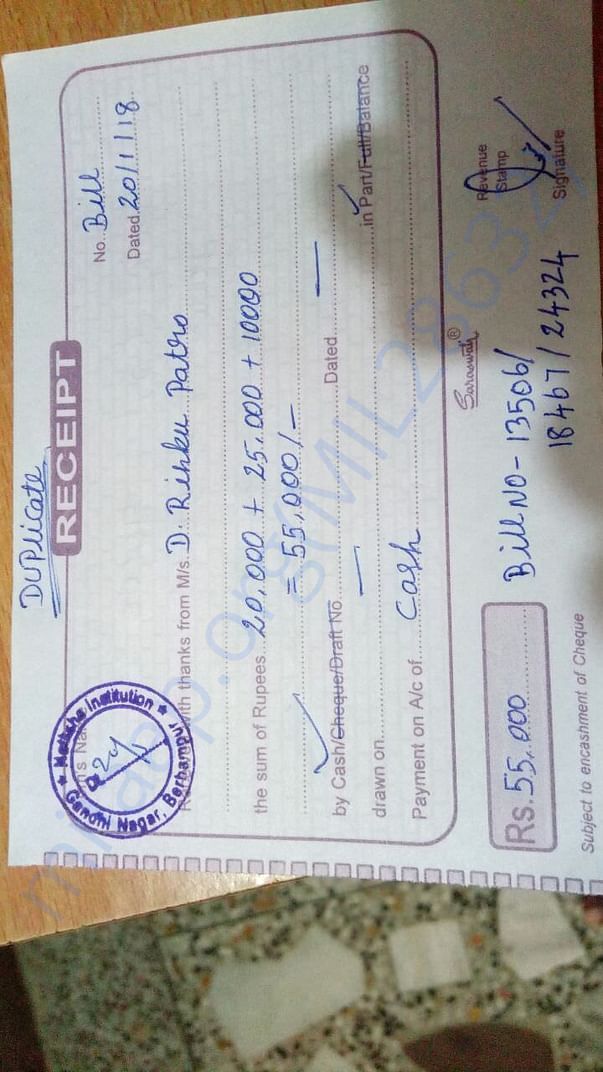 DUPlicate
RECEIPT
No. Bill
Dated 20/1/18
with thanks from M/s. D. Rinku Patro
the sum of Rupees 20,000 + 25,000 + 10000
= 55,000/-
by Cash/Cheque/Draft No. — Dated —
drawn on in Part/Full/Balance
Payment on A/c of Cash
Rs. 55,000
Bill NO - 13506/
18467/24324
Saraswati®
Revenue
Stamp
Signature
Subject to encashment of Cheque
Institution
Gandhi Nagar, Berhampur